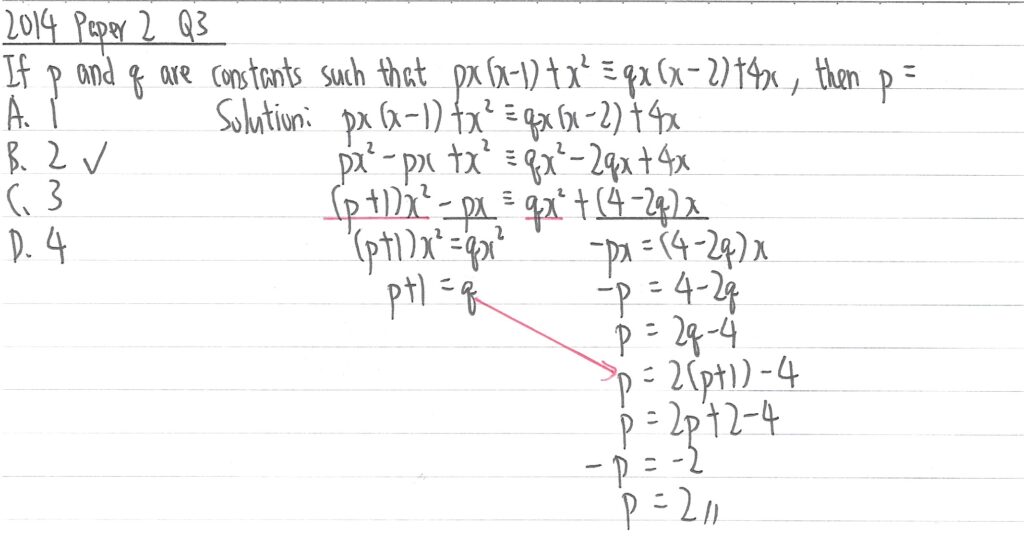 2014 Paper 2 Q3
If p and q are constants such that px(x-1)+x² ≡ qx(x-2)+4x, then p =
A. 1 Solution: px(x-1)+x² ≡ qx(x-2)+4x
B. 2 ✓ px²-px+x² ≡ qx²-2qx+4x
C. 3 (p+1)x²-px ≡ qx²+(4-2q)x
D. 4 (p+1)x²=qx² -px=(4-2q)x
p+1=q -p = 4-2q
p = 2q-4
p = 2(p+1)-4
p = 2p+2-4
-p = -2
p = 2//